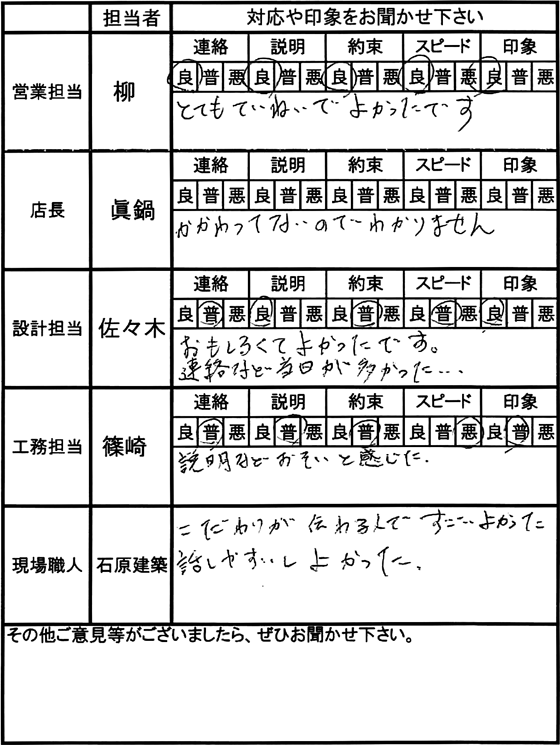 担当者 対応や印象をお聞かせ下さい
営業担当 柳
連絡 説明 約束 スピード 印象
良 普 悪 良 普 悪 良 普 悪 良 普 悪 良 普 悪
とてもていねいでよかったです
店長 眞鍋
連絡 説明 約束 スピード 印象
良 普 悪 良 普 悪 良 普 悪 良 普 悪 良 普 悪
かかわってないのでわかりません
設計担当 佐々木
連絡 説明 約束 スピード 印象
良 普 悪 良 普 悪 良 普 悪 良 普 悪 良 普 悪
おもしろくてよかったです。
連絡など当日が多かった…
工務担当 篠崎
連絡 説明 約束 スピード 印象
良 普 悪 良 普 悪 良 普 悪 良 普 悪 良 普 悪
説明などおそいと感じた.
現場職人 石原建築
こだわりが伝わる人ですごいよかった
話しやすいしよかった.
その他ご意見等がございましたら、ぜひお聞かせ下さい。